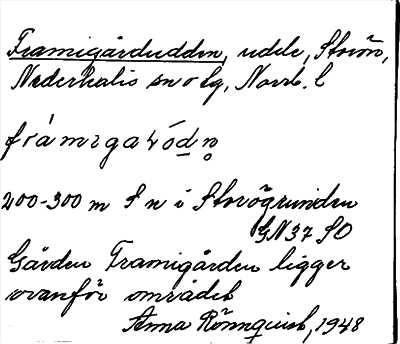 Framigårdudden, udde, Storön,
Nederkalix sn o tg, Norrb. l
200-300 m S n i Storögrunden
GN37 SO
Gården Framigården ligger
ovanför området
Anna Rönnquist, 1948